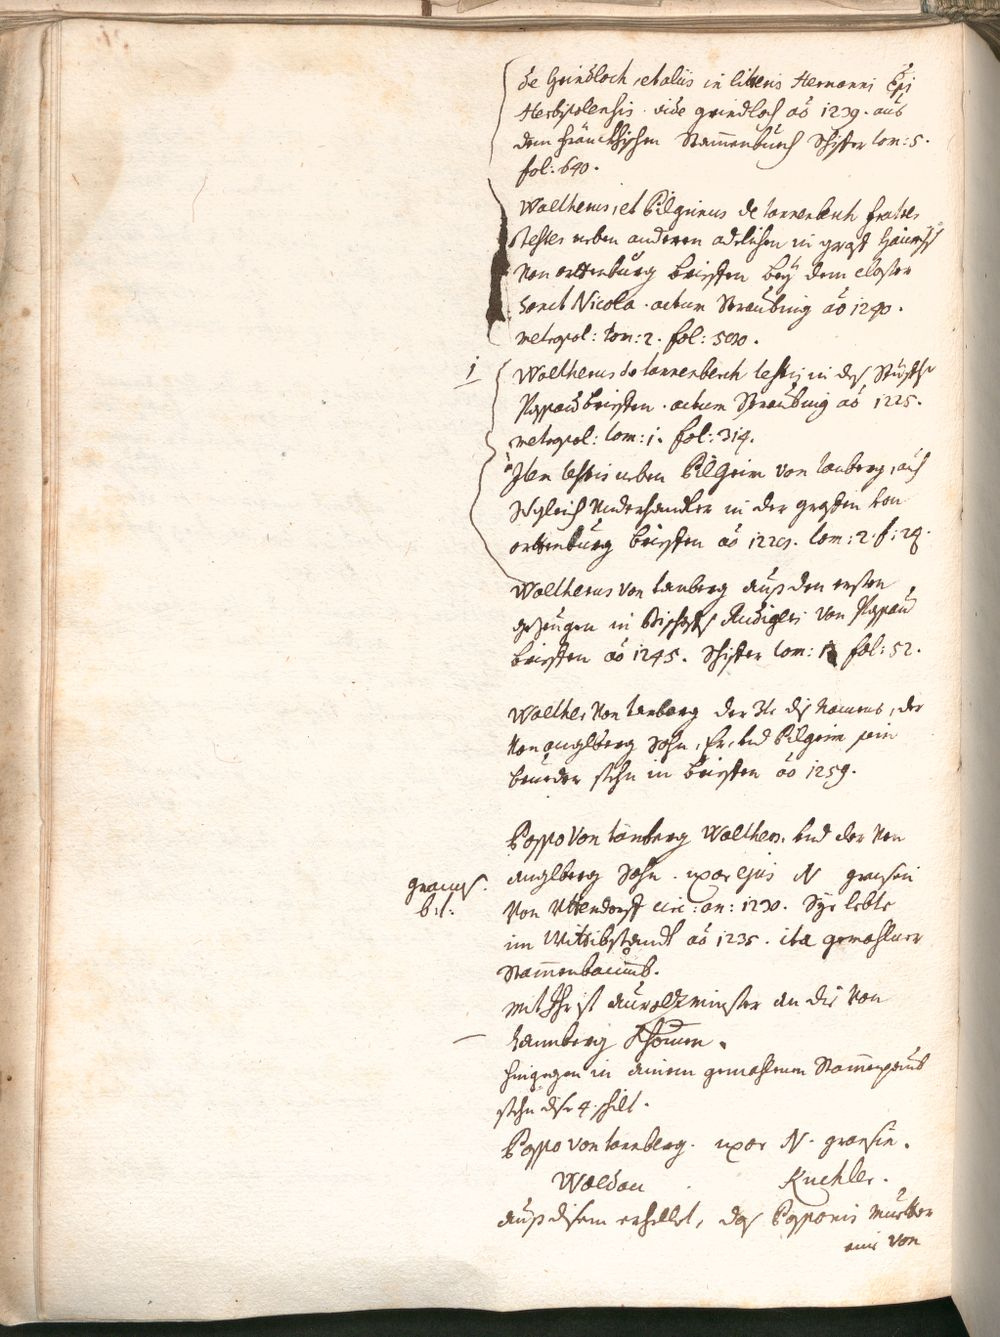 de Grindloch, et aliis in literis Hermanni Epi
Herbipolensis. vide grindloch aō 1239. aus
dem fränckhischen Stam̄enbuch Schifter tom: 5.
fol: 640.
Waltherus, et Pilgrimus de tannenberch fratres
testes neben anderen adelichen in graf
von ortenburg brieffen beÿ dem closter
Sanct Nicola. actum Straubing aō 1240.
metropol: tom: 2. fol:
1
Waltherus de tannenberch testis in des Stüffts
Passau brieffen. actum Straubing aō 1225.
metropol: tom: 1. fol: 314.
Item testis neben Pilgrim von tanberg, auch
Underhandler in der grafen von
ortenburg brieffen aō 1229. tom: 2. f: 24.
Waltherus von tanberg auß den ersten
gezeugen in Bischofs Rudigeri von Passau
brieffen aō 1245. Schifter tom: fol: 52.
Walther von tanberg der 3te diß Namens, der
von Anglberg Sohn, Er, und Pilgrim sein
brueder stehn in brieffen aō 1259.
Poppo von tanberg Walthers, und der von
Anglberg Sohn. uxor ejus N graesin
von Uttendorff circ: an: 1230. Sÿe lebte
im Wittibstandt aō 1235. ita gemahlner
Stam̄enbaumb.
Mit Ihr ist aurolzminster an die von
tannberg khomen.
hingegen in ainem gemahlenen Stam̄enpaumb
stehn dise 4. schilt.
Poppo von tannberg. uxor N. graesin.
Waldau . Kuchler.
auß disem erhellet, das Popponis Muetter
eine von